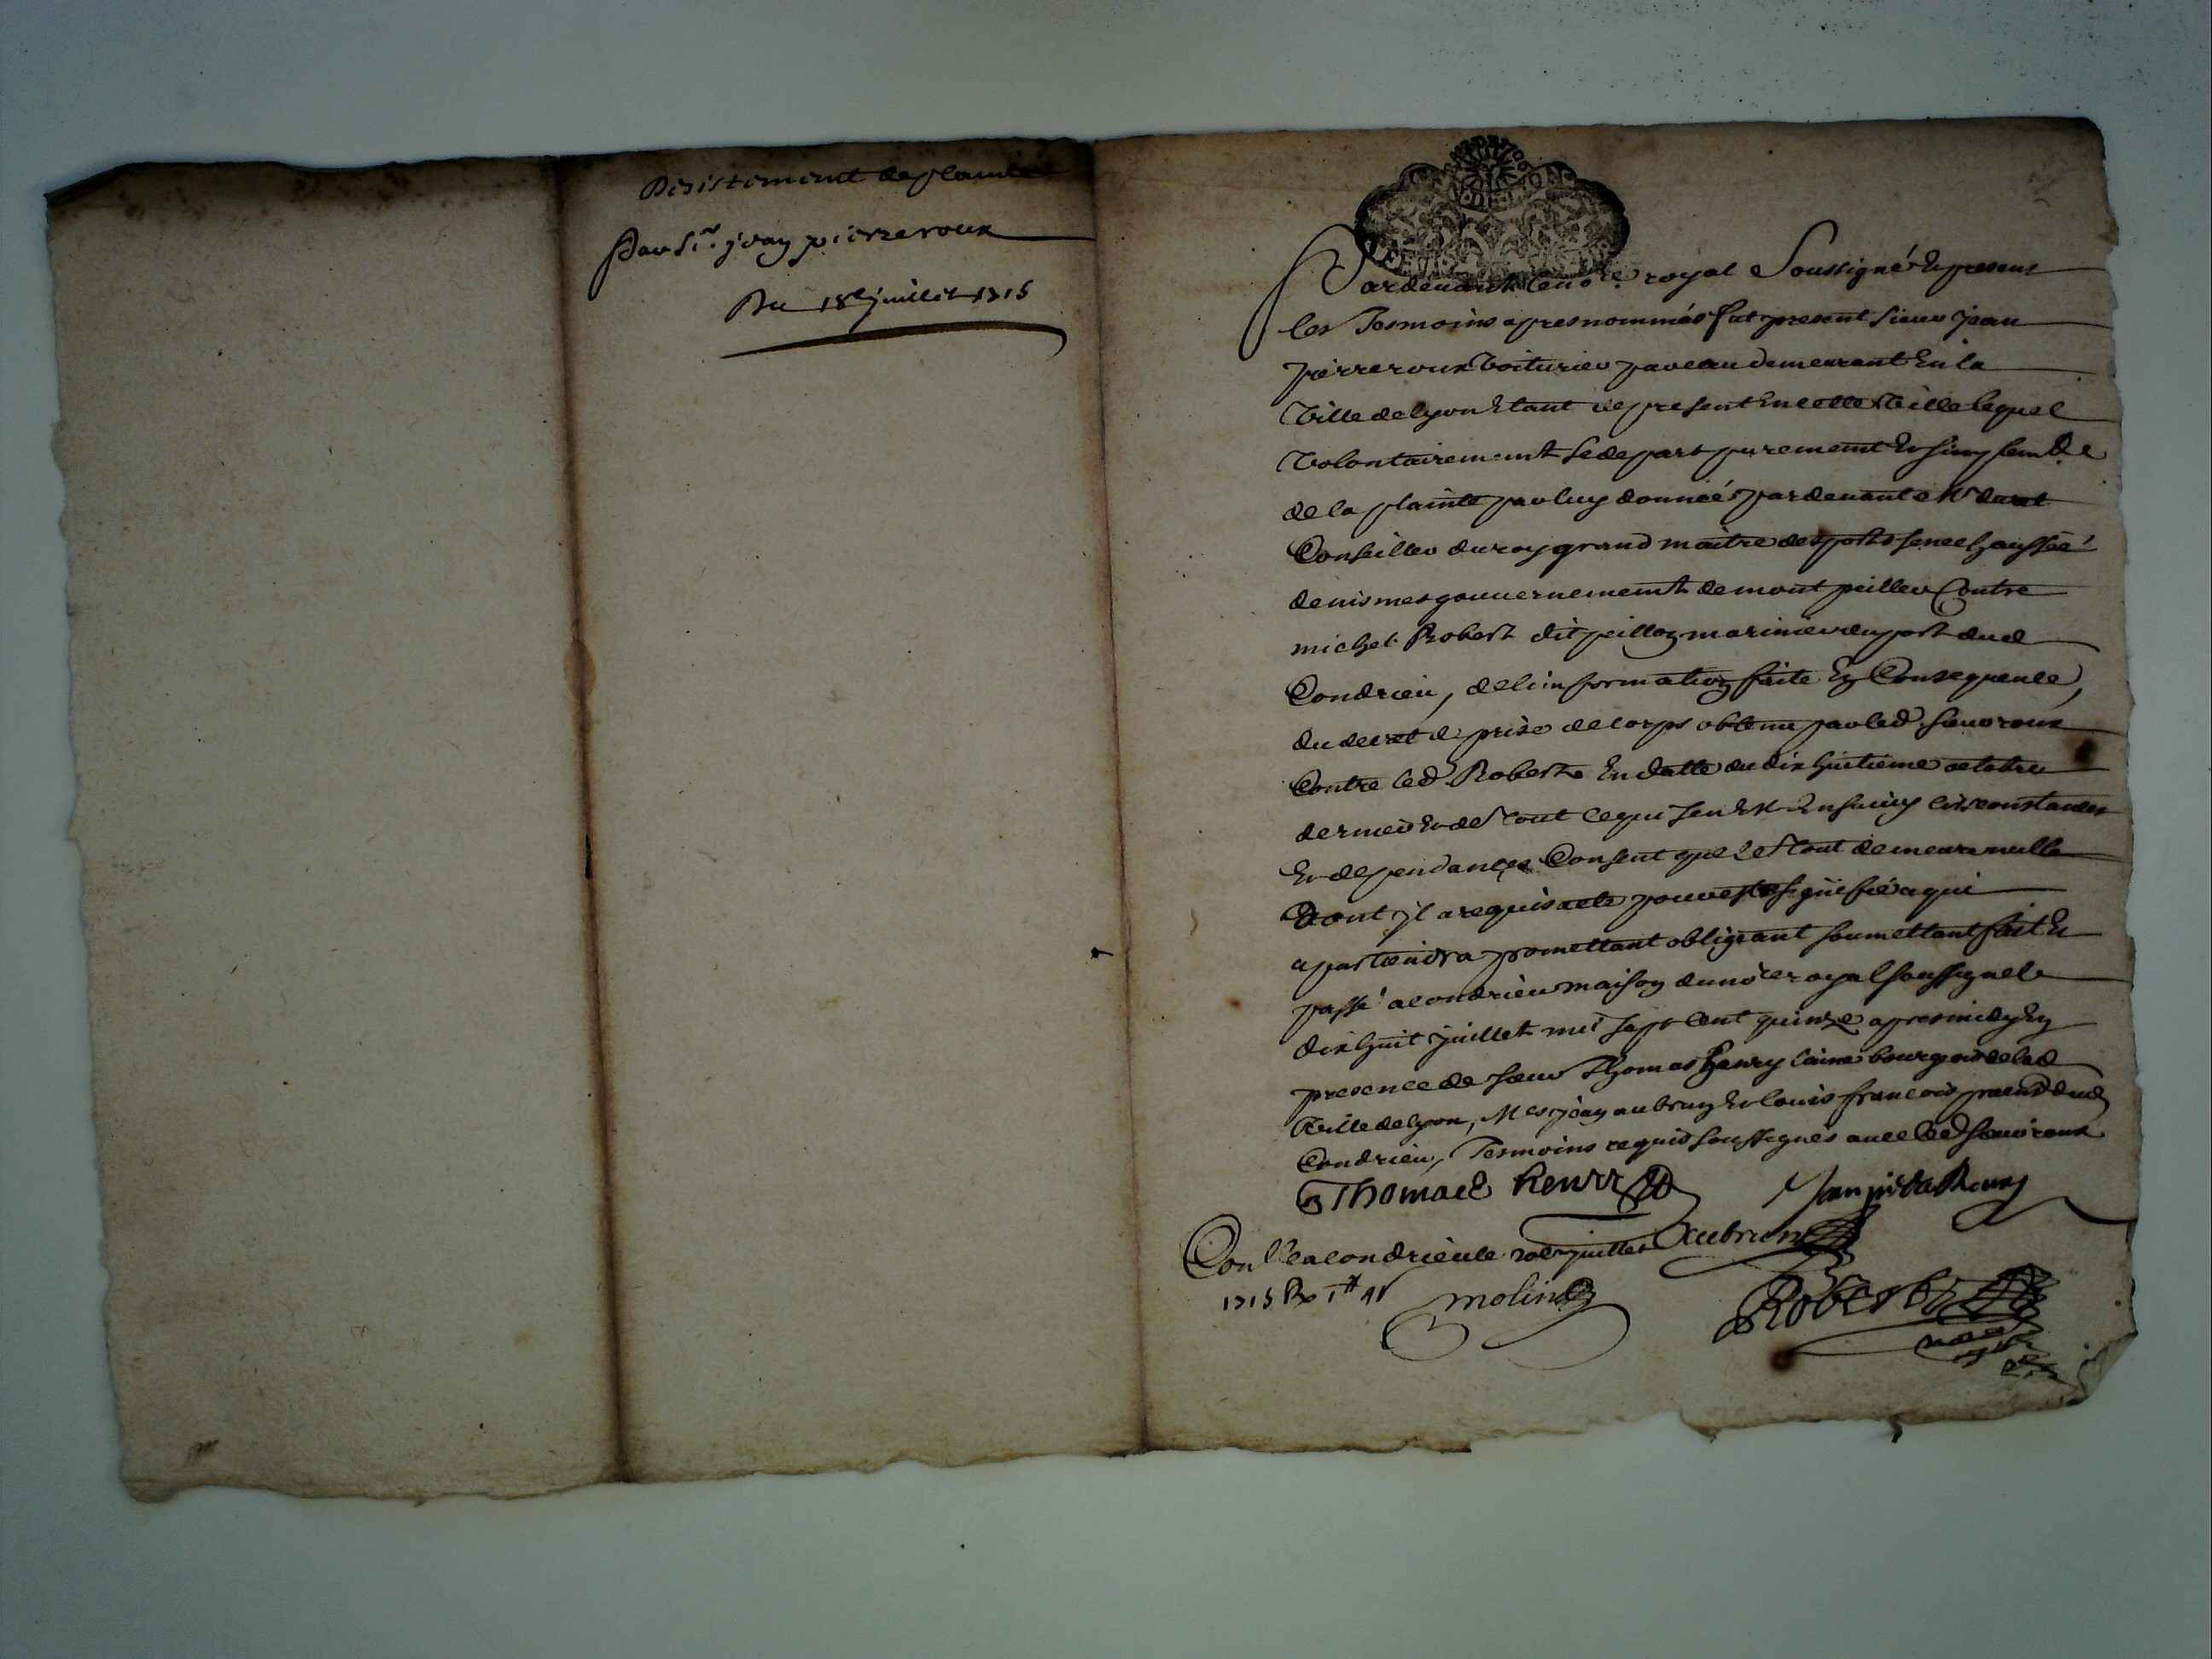 Desistement de plainte
Par Sr. jean pierre roux
Du 18e juillet 1715
Pardevant le nore royal Soussigné & present
les Tesmoins apres nommés fut present sieur jean
pierre roux voiturier par eau demeurant en la
Ville de lyon Etant de present en cette Ville lequel
Volontairement se depart purement & simplemt
de la plainte par luy donnée pardevant Mr
Conseiller du roy grand maitre des ports senechaussée
de nismes gouvernement de montpeillier Contre
michel Robert dit peillon marinier du port dud
Condrieu, de linformation faite en Consequence,
du decret de prise de corps obtenu par led sieur roux
Contre led Robert En datte du dix huitieme octobre
dernier & de tout ce qui sen est Ensuivy circonstances
& dependances Consent que le tout demeure nulle
dont jl a requis acte pour estre signiffié a qui
apartiendra promettant obligeant soumettant fait &
passé a condrieu maison du nore royal soussigné le
dix huit juillet mil sept cent quinze apres midy en
presence de sieur Thomas henry laine bourgeois de lad
Ville de lyon, Mes jean aubrun & louis francois dud
Condrieu, Tesmoins requis soussignés avec led sieur roux
Thomas henrry
aubrun
Conllé a condrieu le 20e juillet
1715 Rx
molin
Robert